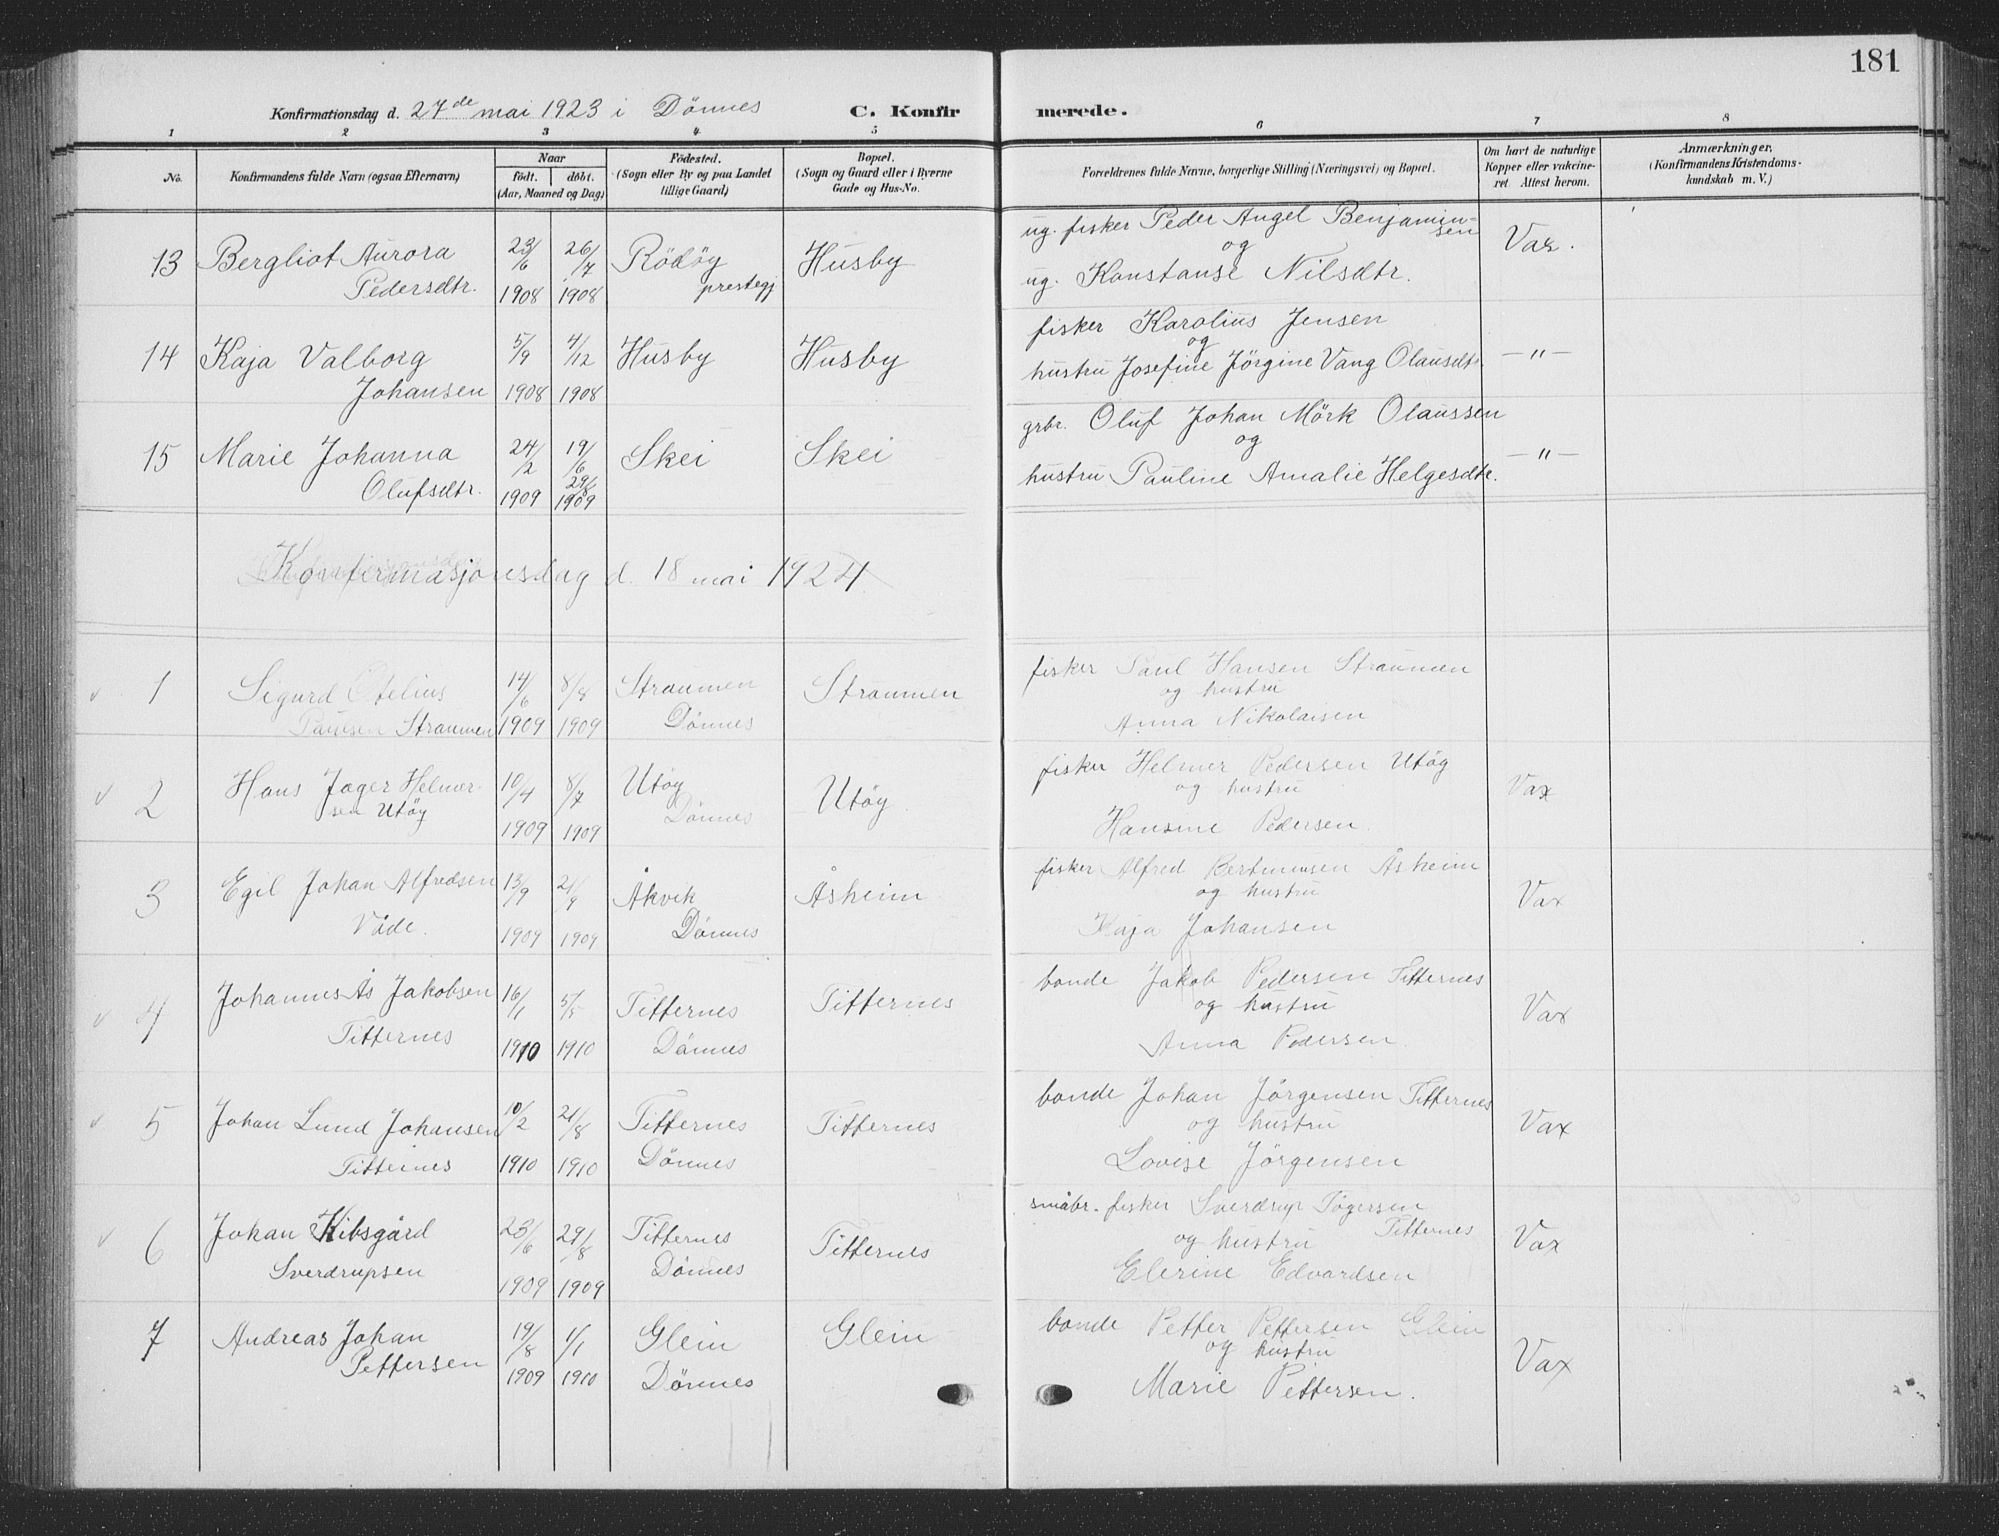 181
Konfirmationsdag d. 27de mai 1923 i Dönnes C. Konfirmerede.
1 2 3 4 5 6 7 8
No.
Konfirmandens fulde Navn (ogsaa Efternavn)
Naar
födt. döbt.
(Aar, Maaned og Dag)
Födested.
(Sogn eller By og paa Landet
tillige Gaard)
Bopæl.
(Sogn og Gaard eller i Byerne
Gade og Hus-No.
Forældrenes fulde Navne, borgerlige Stilling (Næringsvei) og Bopæl.
Om havt de naturlige
Kopper eller vakcine-
ret. Attest herom.
Anmærkninger,
(Konfirmandens Kristendoms-
kundskab m. V.)
13 Bergliot Aurora 23/6 26/7 Rödöy Husby ug. fisker Peder Angel Benjamin-
sen Vax.
og
Pedersdtr. 1908 1908 prestegj ug. Konstanse Nilsdtr.
14 Kaja Valborg 5/9 4/12 Husby Husby fisker Karolius Jensen —"—
og
Johansen 1908 1908 hustru Josefine Jörgine Vang Olausdtr.
15 Marie Johanna 24/2 19/6 Skei Skei grbr. Oluf Johan Mörk Olaussen —"—
29/8 og
Olufsdtr. 1909 1909 hustru Pauline Amalie Helgesdtr.
Konfirmasjonsdag d. 18 mai 1924
v 1 Sigurd Otelius 14/6 8/8 Straumen Straumen fisker Paul Hansen Straumen
og hustru
Paulsen Straumen 1909 1909 Dönnes Anna Nikolaisen
v 2 Hans Jæger Helmer- 10/4 8/7 Utöy Utöy fisker Helmer Pedersen Utöy Vax
og hustru
sen Utöy 1909 1909 Dönnes Hansine Pedersen.
3 Egil Johan Alfredsen 13/9 21/9 Åkvik Åsheim fisker Alfred Bertinussen Åsheim Vax
og hustru
Våde. 1909 1909 Dönnes Kaja Johansen
v 4 Johannes Ås Jakobsen 16/1 5/5 Titternes Titternes bonde Jakob Pedersen Titternes Vax
og hustru
Titternes 1910 1910 Dönnes Anna Pedersen.
v 5 Johan Lund Johansen 10/2 21/8 Titternes Titternes bonde Johan Jörgensen Titternes Vax
og hustru
Titternes 1910 1910 Dönnes Lovise Jörgensen
v 6 Johan Kibsgård 23/6 29/8 Titternes Titternes småbr. fisker Sverdrup Tögersen Vax
og hustru Titternes
Sverdrupsen 1909 1909 Dönnes Elerine Edvardsen
7 Andreas Johan 19/8 1/1 Glein Glein bonde Petter Pettersen Glein Vax
og hustru
Pettersen 1909 1910 Dönnes Marie Pettersen.